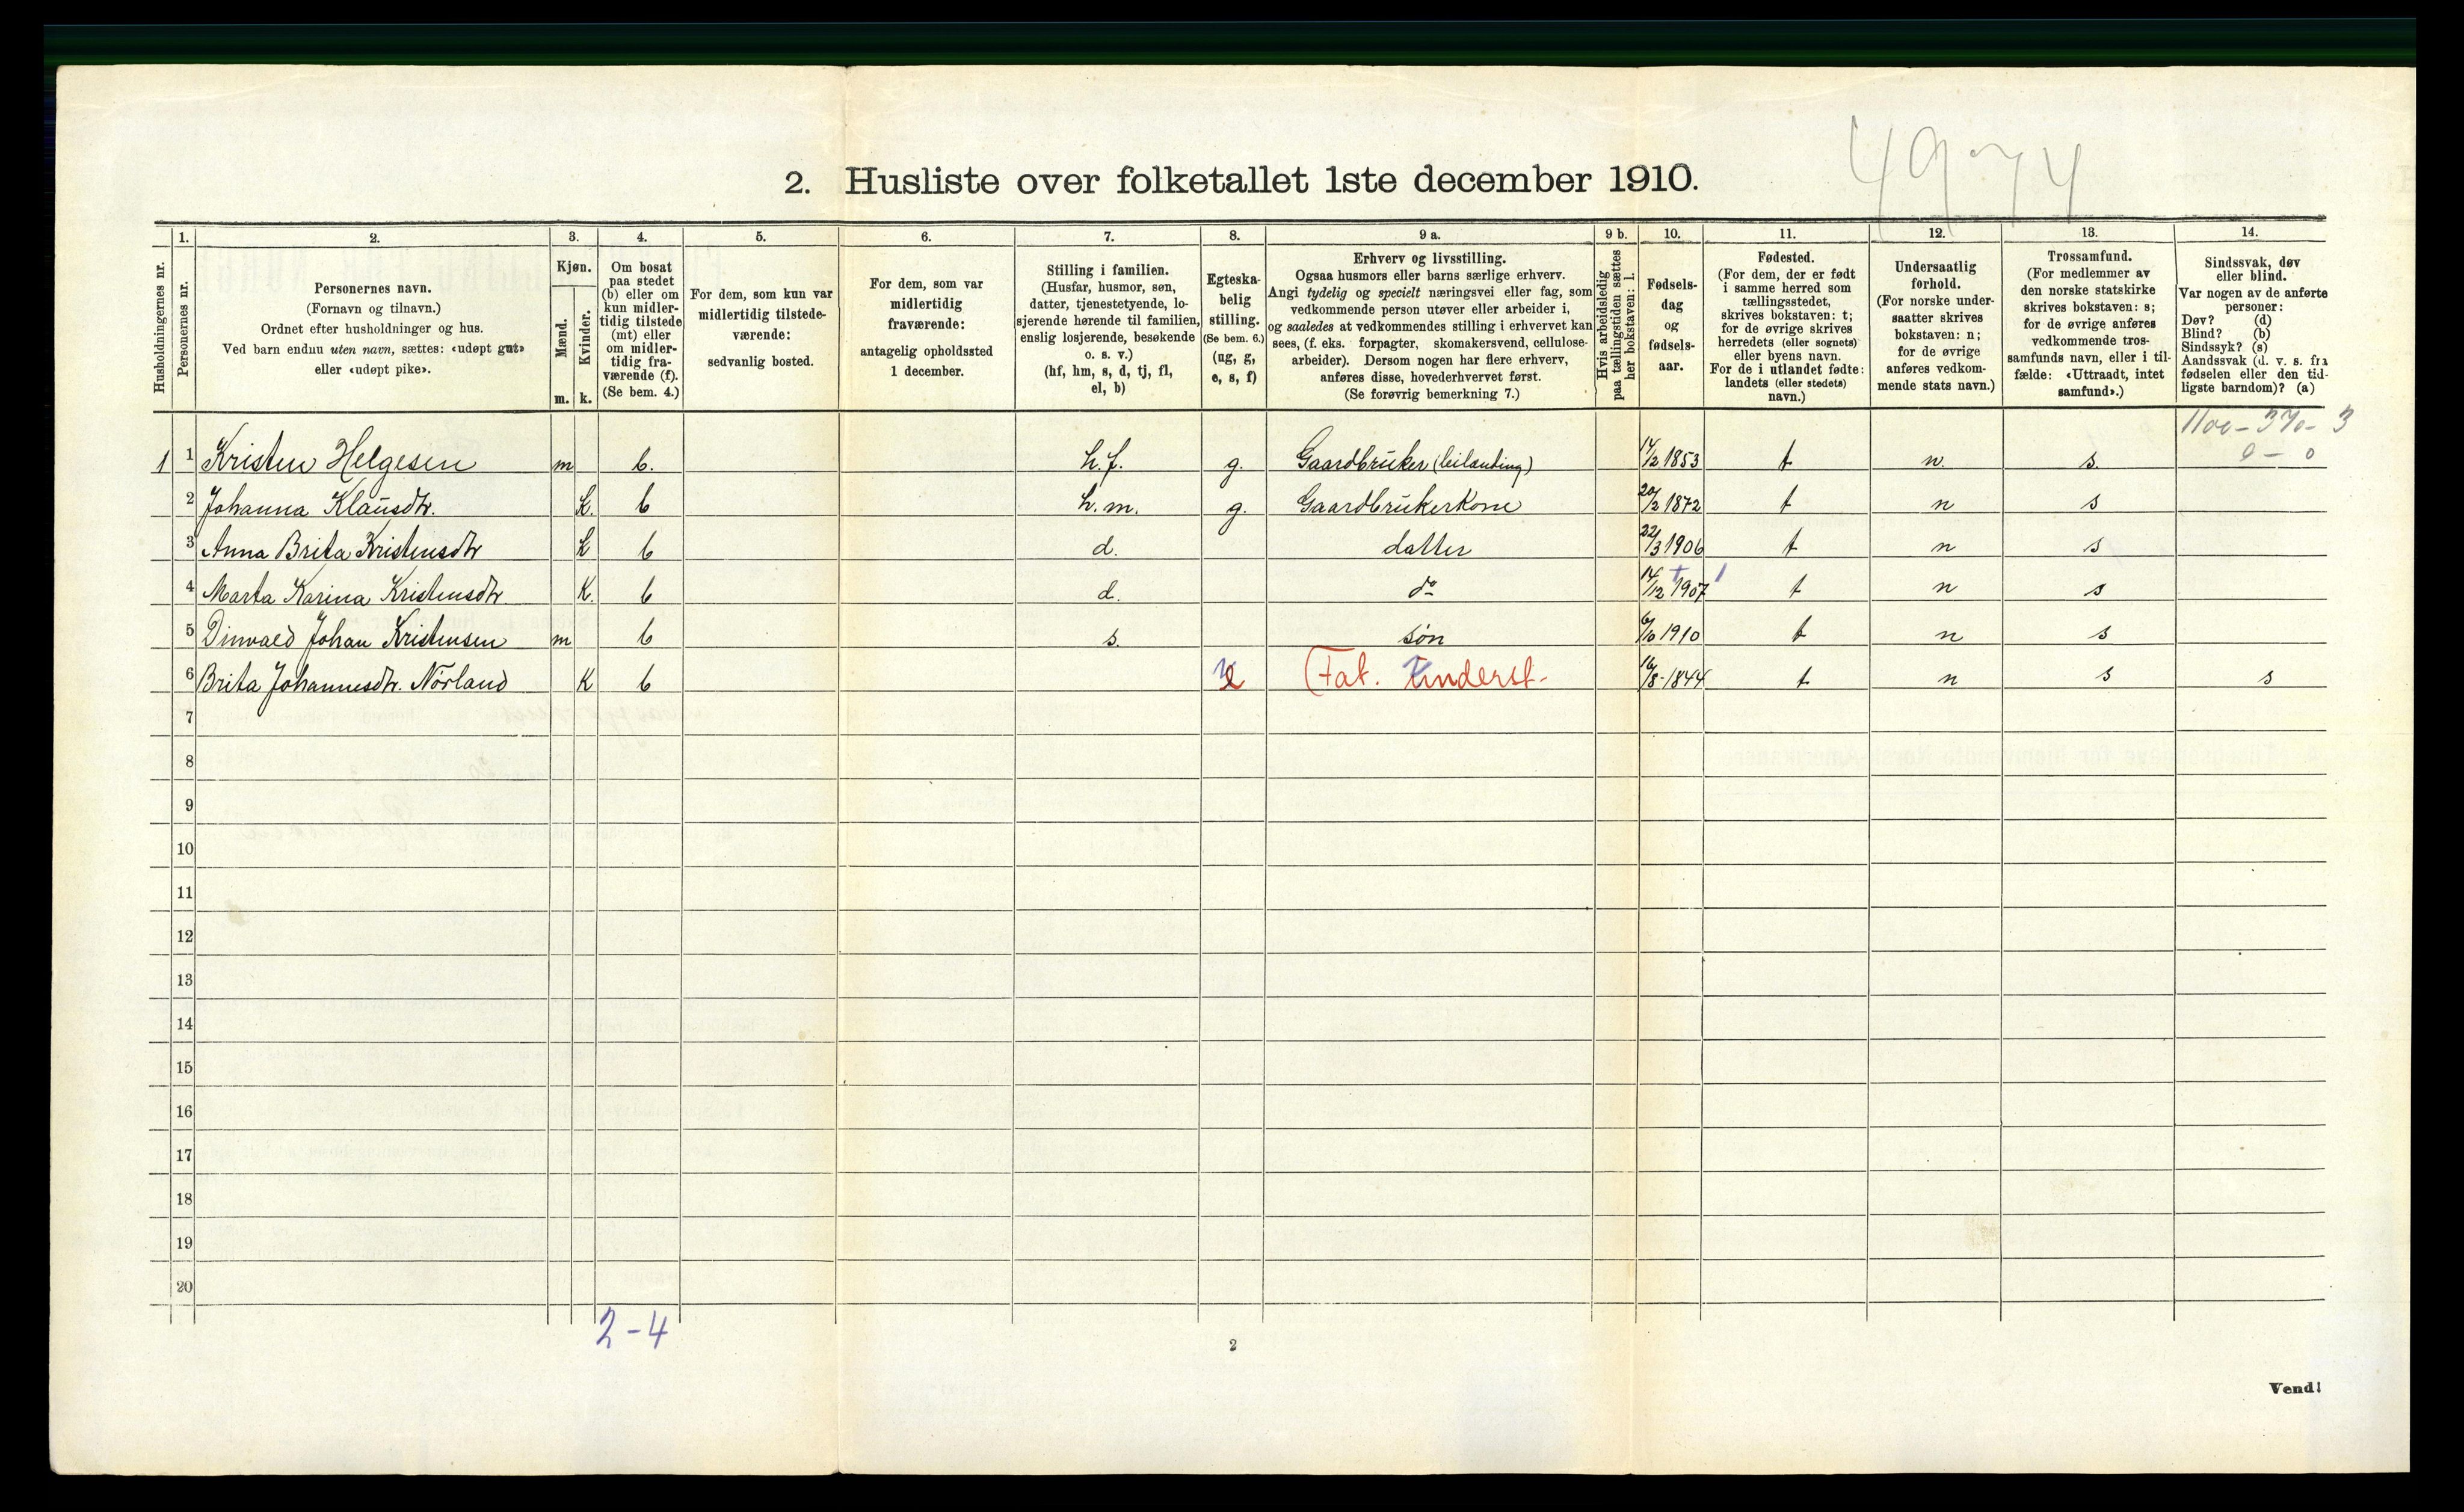 4974
2. Husliste over folketallet 1ste december 1910.
Husholdningernes nr.
1.
Personernes nr.
2.
Personernes navn.
(Fornavn og tilnavn.)
Ordnet efter husholdninger og hus.
Ved barn endnu uten navn, sættes: «udøpt gut»
eller «udøpt pike».
3.
Kjøn.
Mænd.
Kvinder.
m. k.
4.
Om bosat
paa stedet
(b) eller om
kun midler-
tidig tilstede
(mt) eller
om midler-
tidig fra-
værende (f).
(Se bem. 4.)
5.
For dem, som kun var
midlertidig tilstede-
værende:
sedvanlig bosted.
6.
For dem, som var
midlertidig
fraværende:
antagelig opholdssted
1 december.
7.
Stilling i familien.
(Husfar, husmor, søn,
datter, tjenestetyende, lo-
sjerende hørende til familien,
enslig losjerende, besøkende
o. s. v.)
(hf, hm, s, d, tj, fl,
el, b)
8.
Egteska-
belig
stilling.
(Se bem. 6.)
(ug, g,
e, s, f)
9 a.
Erhverv og livsstilling.
Ogsaa husmors eller barns særlige erhverv.
Angi tydelig og specielt næringsvei eller fag, som
vedkommende person utøver eller arbeider i,
og saaledes at vedkommendes stilling i erhvervet kan
sees, (f. eks. forpagter, skomakersvend, cellulose-
arbeider). Dersom nogen har flere erhverv,
anføres disse, hovederhvervet først.
(Se forøvrig bemerkning 7.)
9 b.
Hvis arbeidsledig
paa tællingstiden sættes
her bokstaven: l.
10.
Fødsels-
dag
og
fødsels-
aar.
11.
Fødested.
(For dem, der er født
i samme herred som
tællingsstedet,
skrives bokstaven: t;
for de øvrige skrives
herredets (eller sognets)
eller byens navn.
For de i utlandet fødte:
landets (eller stedets)
navn.)
12.
Undersaatlig
forhold.
(For norske under-
saatter skrives
bokstaven: n;
for de øvrige
anføres vedkom-
mende stats navn.)
13.
Trossamfund.
(For medlemmer av
den norske statskirke
skrives bokstaven: s;
for de øvrige anføres
vedkommende tros-
samfunds navn, eller i til-
fælde: «Uttraadt, intet
samfund».)
14.
Sindssvak, døv
eller blind.
Var nogen av de anførte
personer:
Døv? (d)
Blind? (b)
Sindssyk? (s)
Aandssvak (d. v. s. fra
fødselen eller den tid-
ligste barndom)? (a)
1100 - 370 - 3
0 - 0
1 1 Kristen Helgesen m b. h.f. g. Gaardbruker (leilænding) 14/2 1853 t n. s.
2 Johanna Klausdtr. k. b h.m. g. Gaardbrukerkone 20/2 1872 t n s
3 Anna Brita Kristensdtr k b d. datter 22/3 1906 t n s
4 Marta Karina Kristensdtr K. b d. do 14/12 1907 t n s
5 Dinvald Johan Kristensen m b s. søn 6/10 1910 t n s
6 Brita Johannesdtr. Nörland K b e (Fat. Underst- 16/8-1844 t n s s
7
8
9
10
11
12
13
14
15
16
17
18
19
20
2-4
2
Vend!